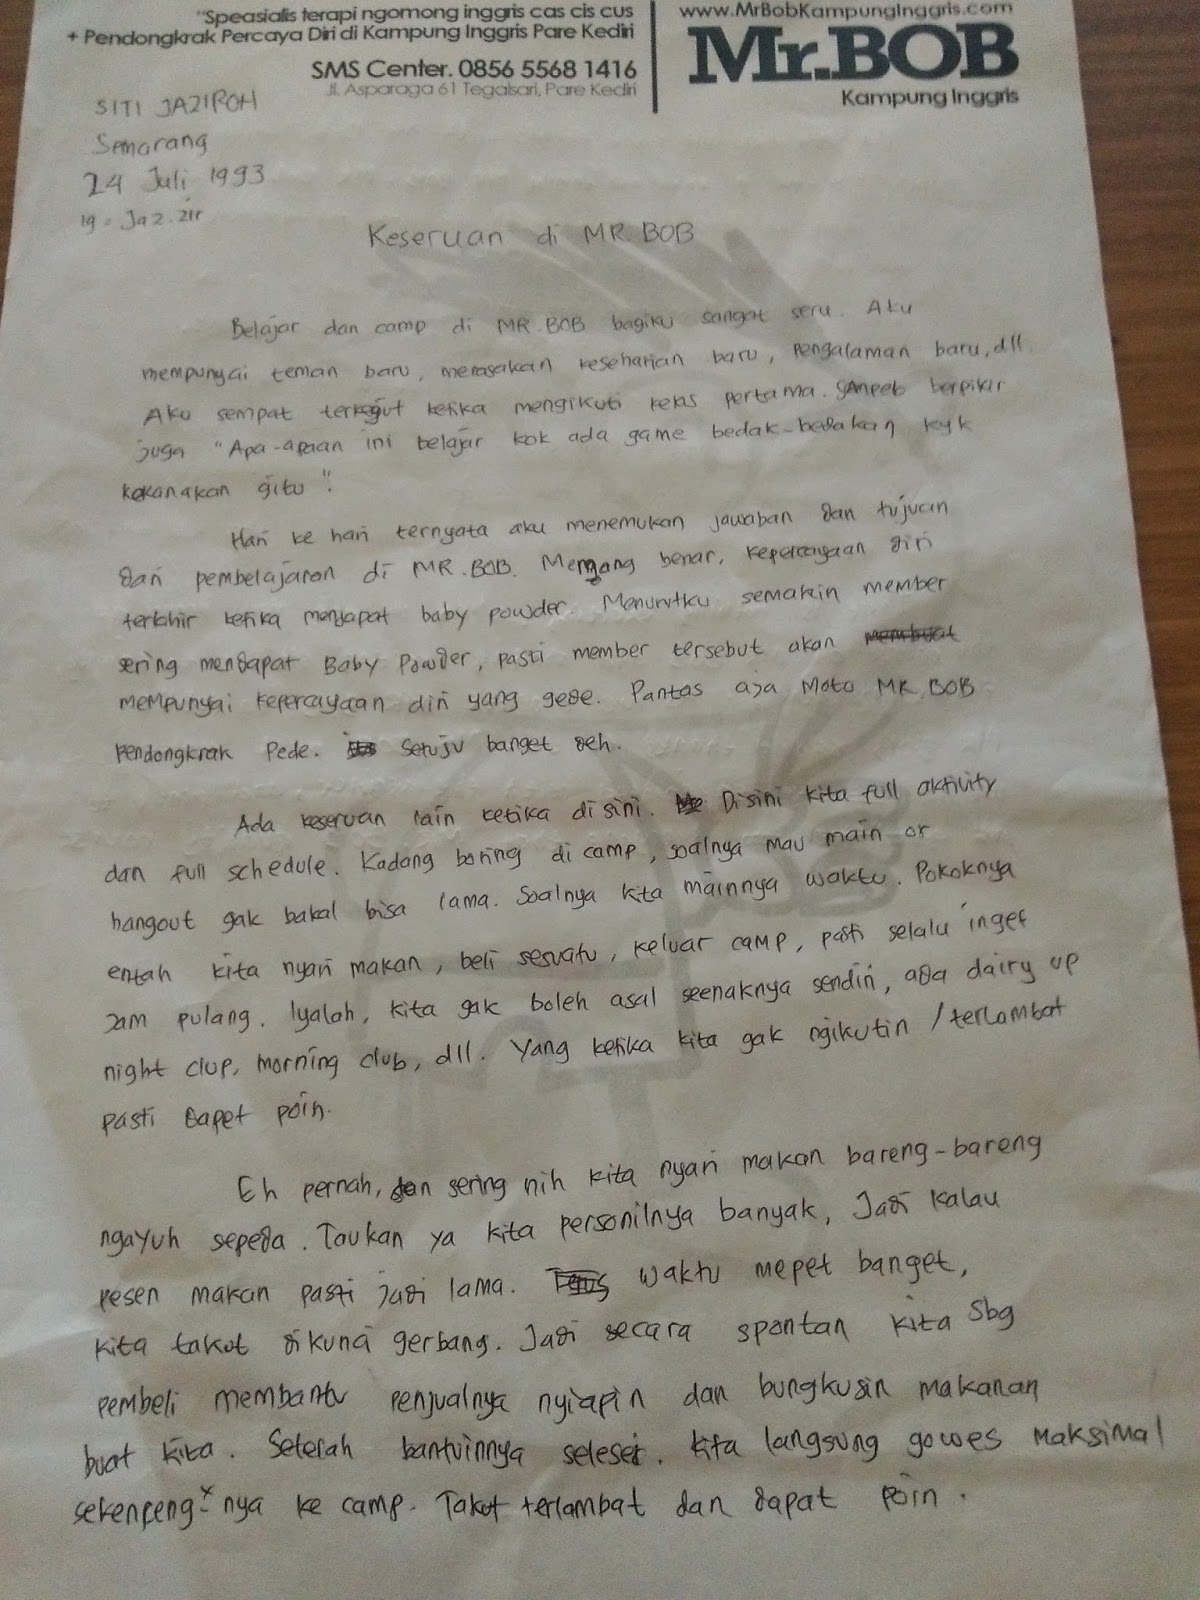 "Speasialis terapi ngomong inggris cas cis cus
+ Pendongkrak Percaya Diri di Kampung Inggris Pare Kediri
SMS Center. 0856 5568 1416
Jl. Asparaga 61 Tegalsari, Pare Kediri
www.MrBobKampungInggris.com
Mr.BOB
Kampung Inggris
SITI JAZIROH
Semarang
24 Juli 1993
ig = Jaz.zir
Keseruan di MR.BOB
Belajar dan camp di MR.BOB bagiku sangat seru. Aku
mempunyai teman baru, merasakan keseharian baru, pengalaman baru, dll.
Aku sempat terkejut ketika mengikuti kelas pertama. berpikir
juga "Apa-apaan ini belajar kok ada game bedak-bedakan kyk
kekanakan gitu".
Hari ke hari ternyata aku menemukan jawaban dan tujuan
dari pembelajaran di MR.BOB. Memang benar, kepercayaan diri
terlahir ketika mendapat baby powder. Menurutku semakin member
sering mendapat Baby Powder, pasti member tersebut akan membuat
mempunyai kepercayaan diri yang gede. Pantas aja Moto MR.BOB
Pendongkrak Pede. Setuju banget deh.
Ada keseruan lain ketika disini. Me Disini kita full aktivity
dan full schedule. Kadang boring di camp, soalnya mau main or
hangout gak bakal bisa lama. Soalnya kita mainnya waktu. Pokoknya
entah kita nyari makan, beli sesuatu, keluar camp, pasti selalu inget
Jam pulang. Iyalah, kita gak boleh asal seenaknya sendiri, ada dairy up
night clup, morning club, dll. Yang ketika kita gak ngikutin / terlambat
pasti dapet poin.
Eh pernah, dan sering nih kita nyari makan bareng-bareng
ngayuh sepeda. Taukan ya kita personilnya banyak, Jadi kalau
pesen makan pasti jadi lama. Terus waktu mepet banget,
kita takut dikunci gerbang. Jadi secara spontan kita sbg
pembeli membantu penjualnya nyiapin dan bungkusin makanan
buat kita. Setelah bantuinnya selesei. kita langsung gowes maksimal
sekenceng²nya ke camp. Takut terlambat dan dapat poin.